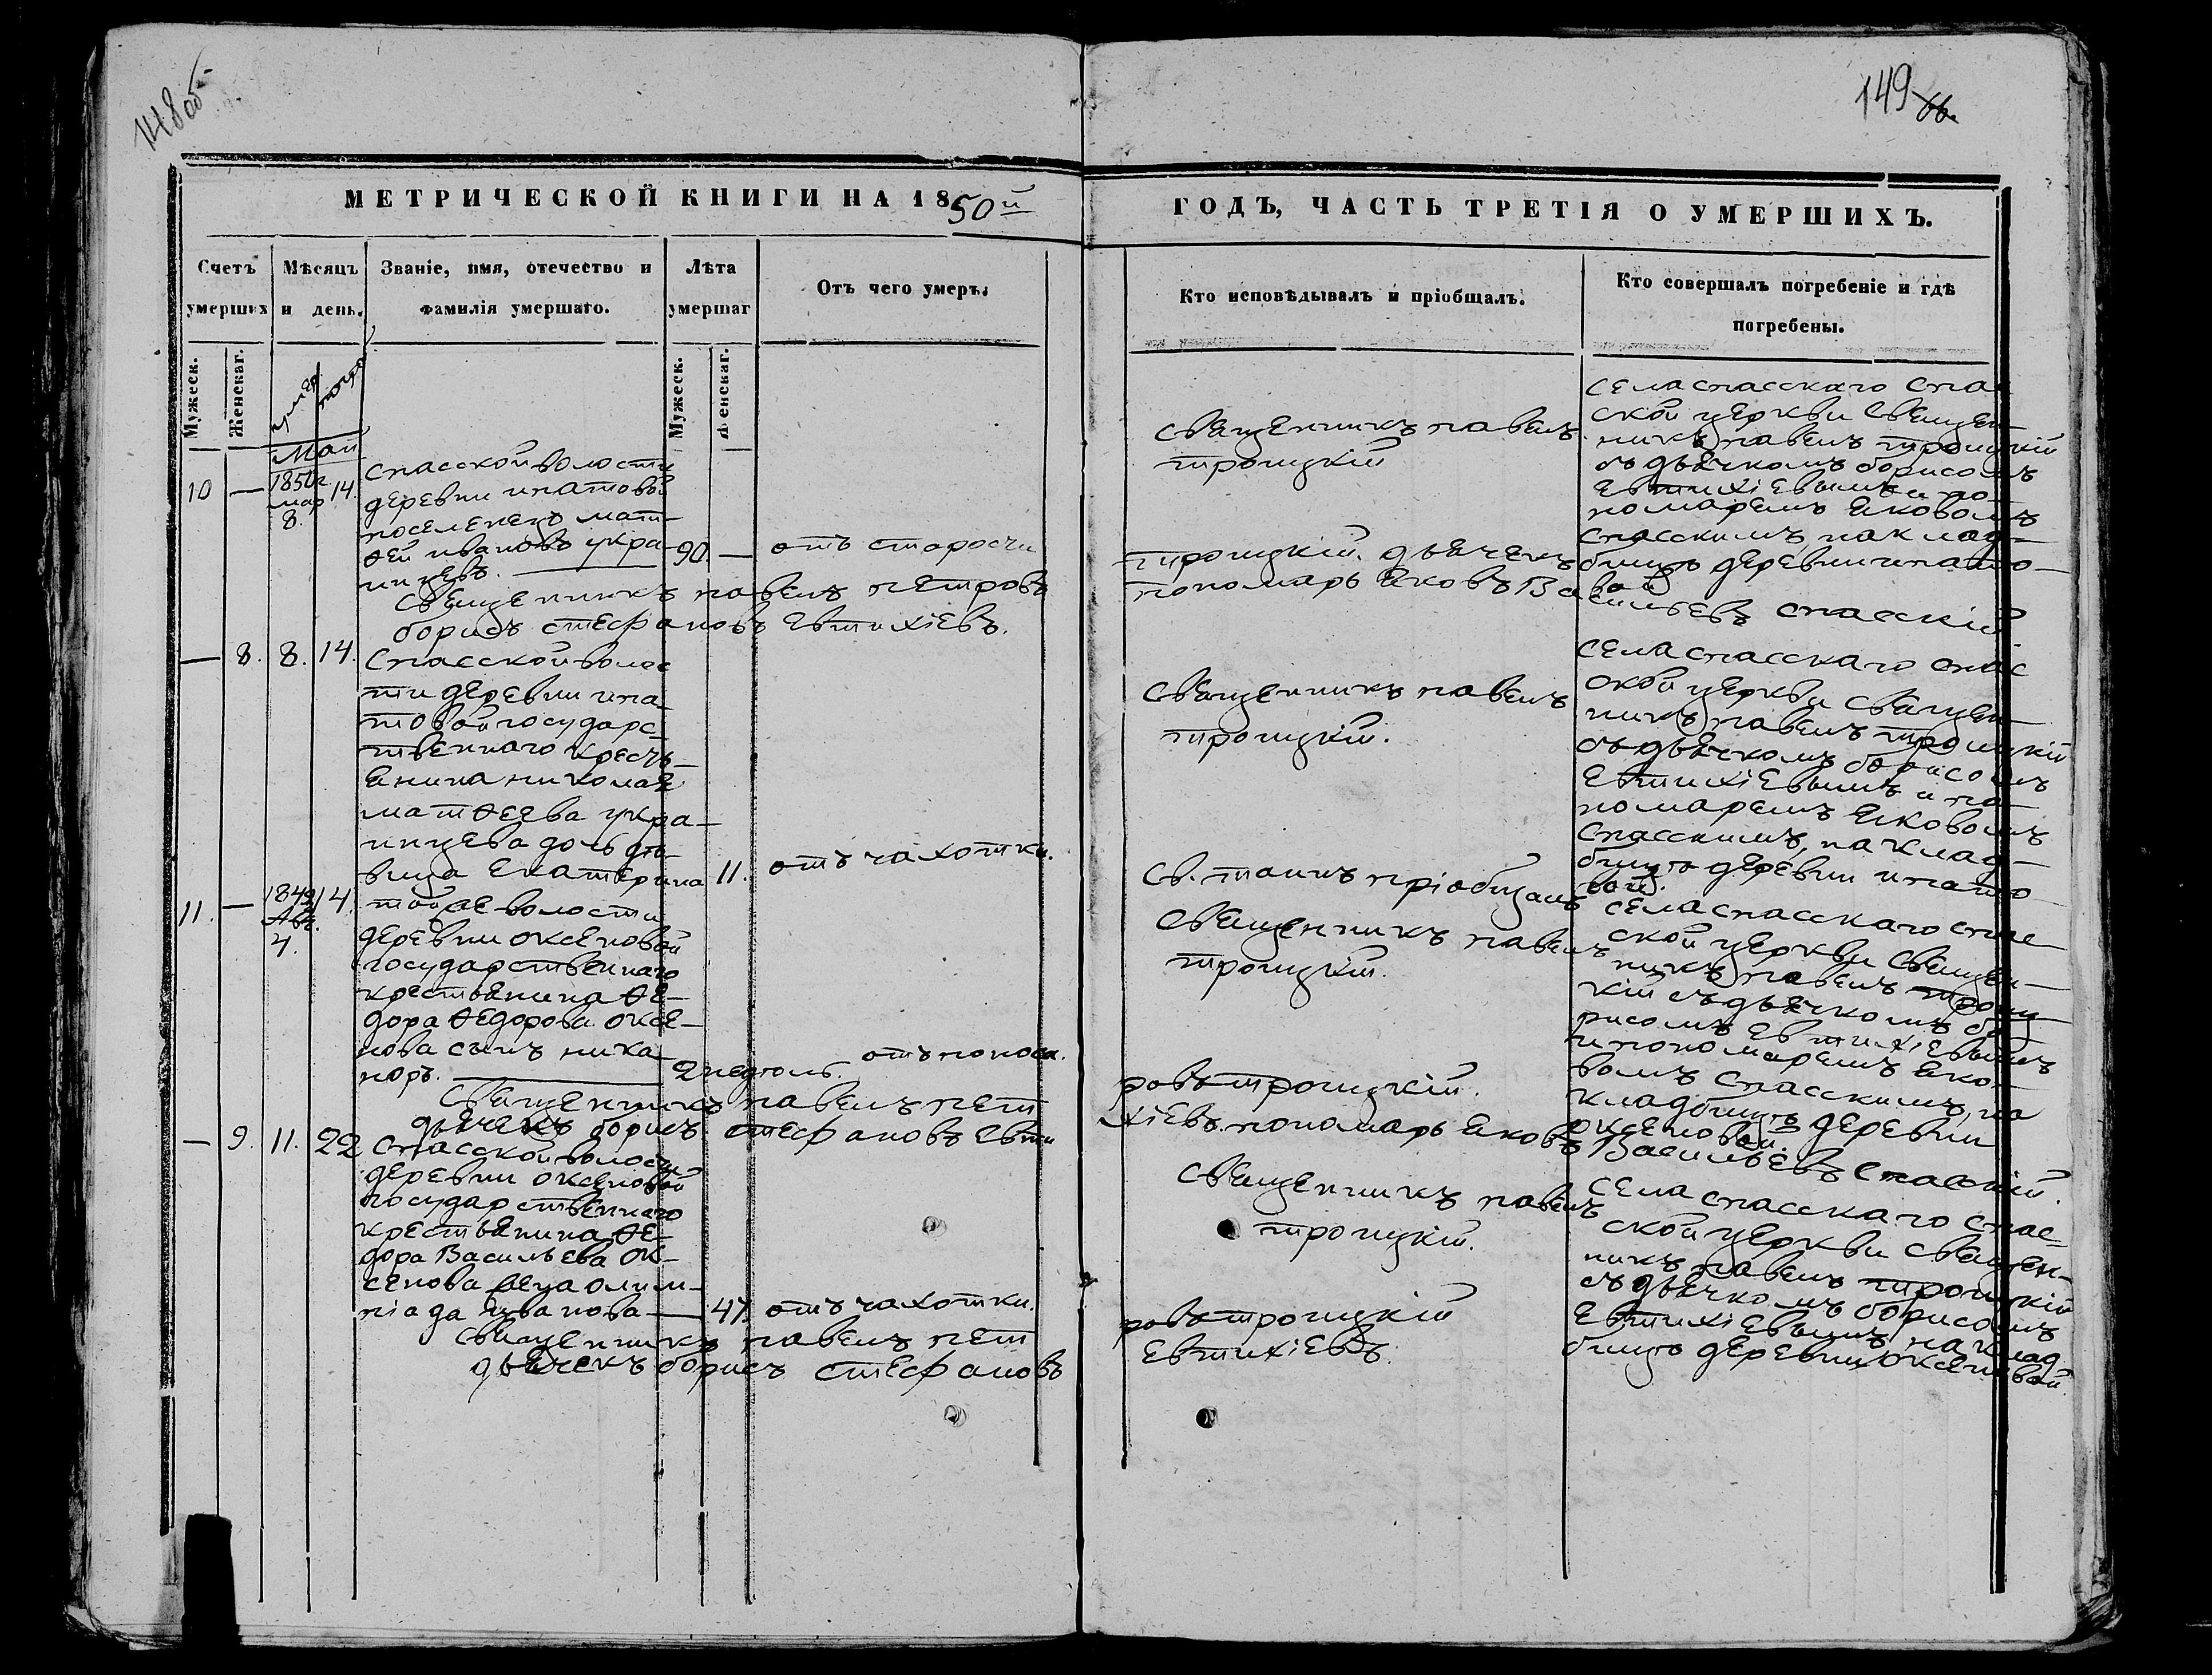 148 об
149
МЕТРИЧЕСКОЙ КНИГИ НА 1850й
ГОДЪ, ЧАСТЬ ТРЕТІЯ О УМЕРШИХЪ.
Счетъ умерших
Мѣсяцъ и день.
Званіе, имя, отечество и фамилія умершаго.
Лѣта умершаг
Отъ чего умеръ.
Кто исповѣдывалъ и пріобщалъ.
Кто совершалъ погребеніе и гдѣ погребены.
Мужеск.
Женскаг.
Мужеск.
Женскаг.
Май
10 — 1850г мар 8. 14.
Спасской волости
деревни ипатовой
поселенецъ мат-
ѳей ивановъ укра-
инцевъ.
90. — отъ старости
священникъ павелъ
троицкій
села спасскаго спас
ской церкви священ-
никъ павелъ троицкій
съ дьячкомъ борисомъ
Евтихіевымъ и по-
номаремъ яковомъ
спасскимъ, на клад-
бищѣ деревни ипато-
вой
священникъ павелъ петровъ троицкій. дьячекъ
борисъ стефановъ Евтихіевъ. пономарь яковъ Васильевъ спасскій
— 8. 8. 14.
Спасской волос
ти деревни ипа
товой государс
твеннаго кресть-
янина николая
матѳеева укра-
инцева дочь дѣ-
вица Екатерина
11. отъ чахотки.
священникъ павелъ
троицкій.
села спасскаго спас
ской церкви священ-
никъ павелъ троицкій
съ дьячкомъ борисомъ
Евтихіевымъ и по-
номаремъ яковомъ
спасскимъ, на клад-
бищѣ деревни ипато-
вой.
11. — 1849 Авг. 4. 14.
той же волости
деревни оксеновой
государственнаго
крестьянина ѳе-
дора ѳедорова оксе-
нова сынъника-
норъ.
2 недѣль. отъ поноса.
св. таинъ пріобщалъ
священникъ павелъ
троицкій.
села спасскаго спас-
ской церкви священ-
никъ павелъ троиц-
кій съ дьячкомъ бо-
рисомъ Евтихіевымъ
и пономаремъ яко-
вомъ спасскимъ, на
кладбищѣ деревни
оксеновой.
священникъ павелъ петровъ троицкій.
дьячекъ борисъ стефановъ Евтихіевъ. пономарь яковъ Васильевъ спасскій.
— 9. 11. 22
спасской волости
деревни оксеновой
государственнаго
крестьянина ѳе-
дора Васильева ок-
сенова жена олим-
піада иванова —
47. отъ чахотки.
священникъ павелъ
троицкій.
села спасскаго спас-
ской церкви священ-
никъ павелъ троицкій
съ дьячкомъ борисомъ
Евтихіевымъ, на клад-
бищѣ деревни оксеновой.
священникъ павелъ петровъ троицкій
дьячекъ борисъ стефановъ Евтихіевъ.